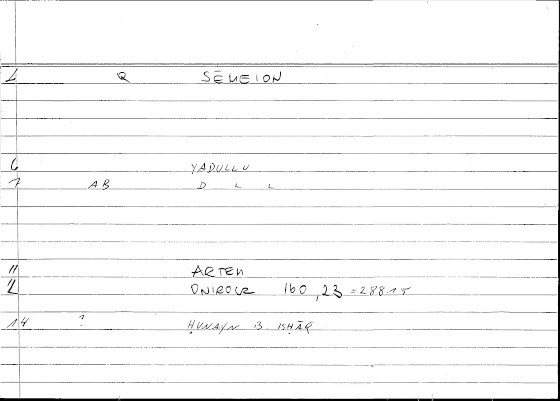 1 R SĒMEION
6 YADULLU
7 AB D L L
11 ARTEM
12 ONIROCR 160,23 = 28815
14 ? ḤUNAYN B. ISḤĀQ